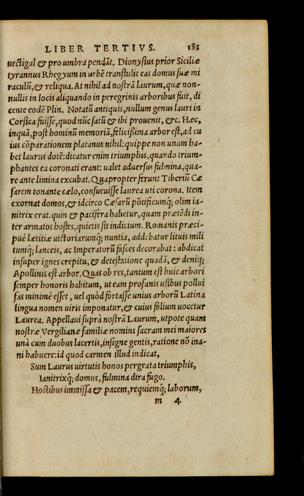 LIBER TERTIVS. 183
uectigal & pro umbra pendāt. Dionysius prior Siciliæ
tyrannus Rhegyum in urbē transtulit eas domus suæ mi
raculū, & reliqua. At nihil ad nostrā laurum, quæ non-
nullis in locis aliquando in peregrinis arboribus fuit, di
cente eodē Plin. Notatū antiquis, nullum genus lauri in
Corsica fuisse, quod nūc satū & ibi prouenit, &c. Hæc,
inquā, post hominū memoriā, felicissima arbor est, ad cu
ius cōparationem platanus nihil: quippe non unam ha-
bet laurus dotē: dicatur enim triumphis, quando trium-
phantes ea coronati erant: ualet aduersus fulmina, qua-
re ante limina excubat. Quapropter ferunt Tiberiū Cæ
sarem tonante cælo, consueuisse laurea uti corona. Item
exornat domos, & idcirco Cæsarū pōtificumq; olim ia-
nitrix erat. quin & pacifera habetur, quam prætēdi in-
ter armatos hostes, quietis sit indicium. Romanis præci-
puè lætitiæ uictoriarumq; nuntia, addebatur lituis mili
tumq; lanceis, ac Imperatorū fasces decorabat: abdicat
insuper ignes crepitu, & detestatione quadā, & deniq;
Apollinis est arbor. Quas ob res, tantum est huic arbori
semper honoris habitum, ut eam profanis usibus pollui
fas minimè esset, uel quòd fortasse unius arborū Latina
lingua nomen uiris imponatur, & cuius folium uocetur
Laurea. Appellaui suprà nostrā Laurum, utpote quam
nostræ Vergilianæ familiæ nomini sacram mei maiores
unà cum duobus lacertis, insigne gentis, ratione nō ina-
ni habuere: id quod carmen illud indicat,
Sum Laurus uirtutis honos pergrata triumphis,
Ianitrixq; domus, fulmina dira fugo.
Hostibus immissa & pacem, requiemq; laborum,
m 4